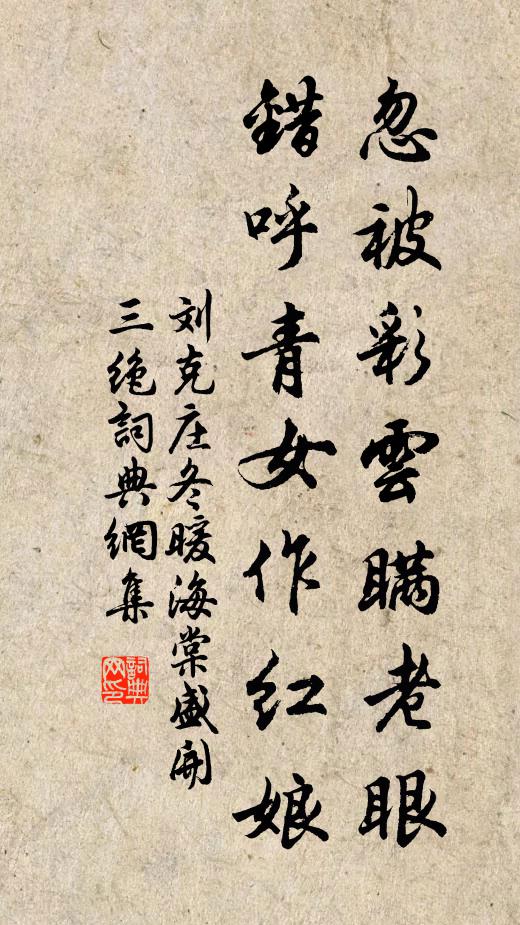 忽被彩雲瞞老眼
錯呼青女作红娘
刘克庄冬暖海棠盛開
三绝詞典網集
詞典
网印